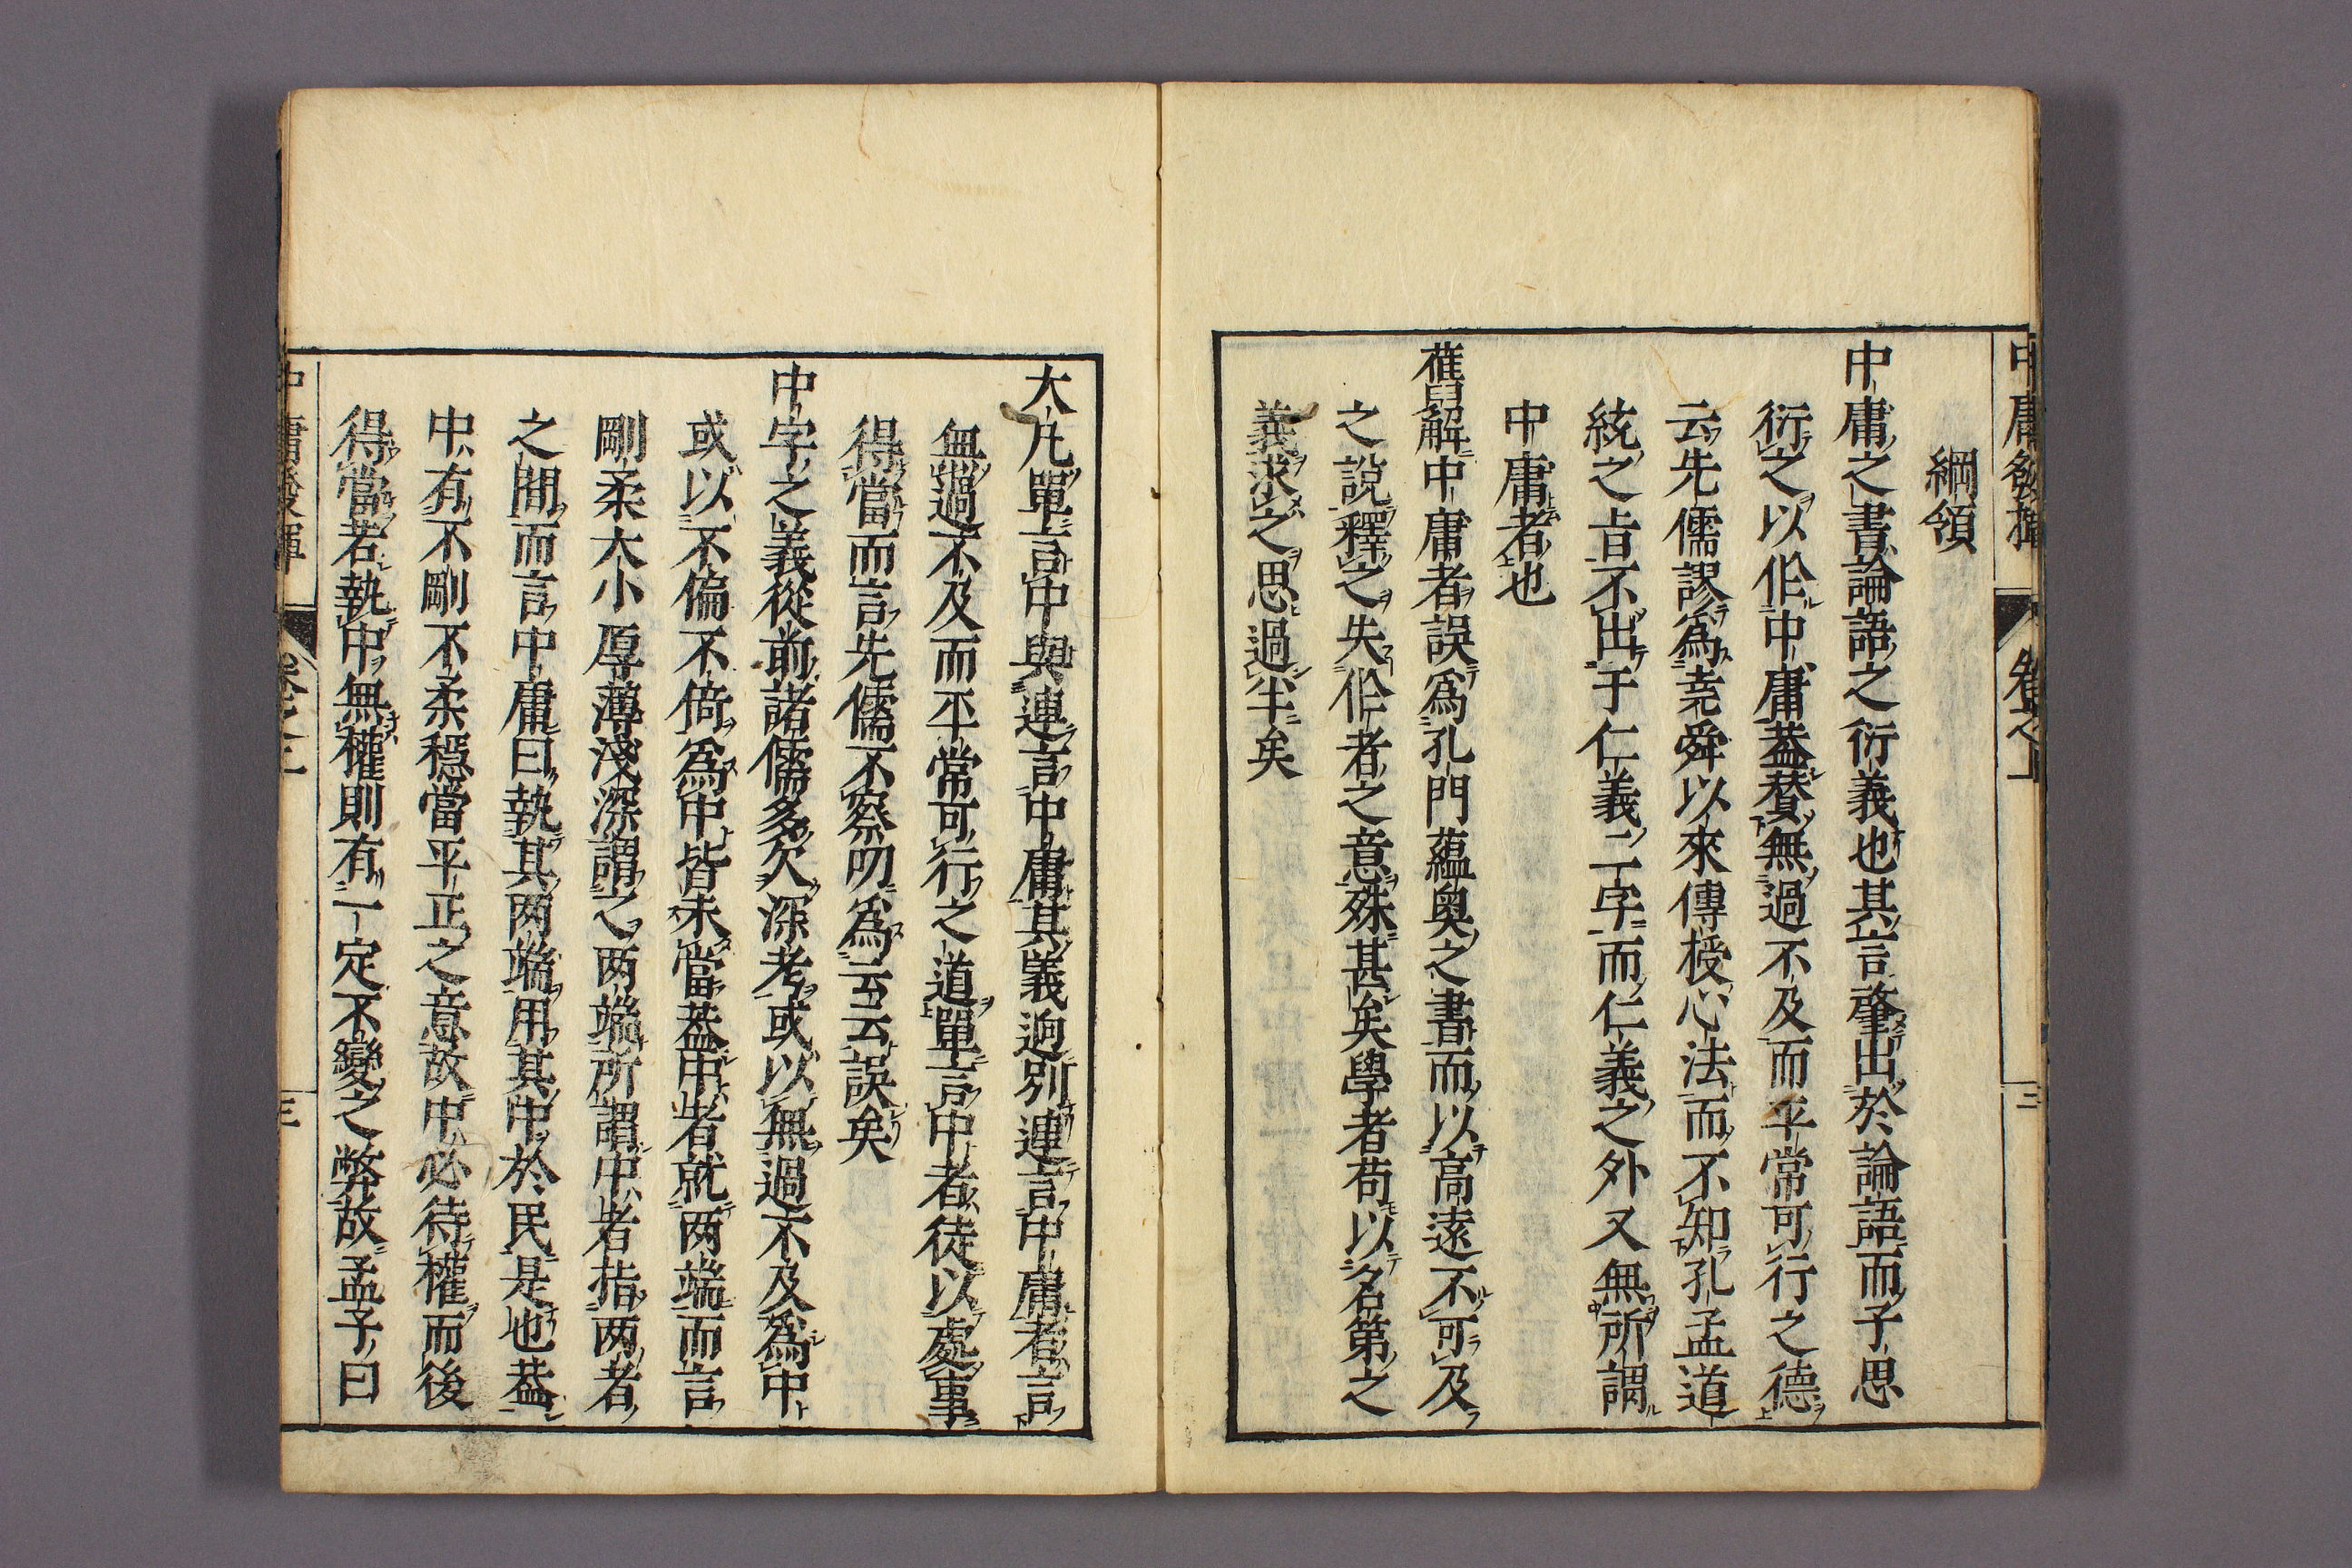 綱領
中庸之書論語之衍義也其言肇出於論語而子思
衍之以作中庸蓋賛無過不及而平常可行之德
云先儒謬爲堯舜以來傳授心法而不知孔孟道
統之旨不出于仁義二字而仁義之外又無所謂
中庸者也
舊解中庸者誤爲孔門蘊奧之書而以高遠不可及
之說釋之失作者之意殊甚矣學者苟以名第之
義求之思過半矣
大凡單言中與連言中庸其義逈別連言中庸者言
無過不及而平常可行之道單言中者徒以處事
得當而言先儒不察叨爲云云誤矣
中字之義從前諸儒多欠深考或以無過不及爲中
或以不偏不倚爲中皆未當蓋中者就两端而言
剛柔大小厚薄淺深謂之两端所謂中者指两者
之間而言中庸曰執其两端用其中於民是也蓋
中有不剛不柔穩當平正之意故中必待權而後
得當若執中無權則有一定不變之弊故孟子曰